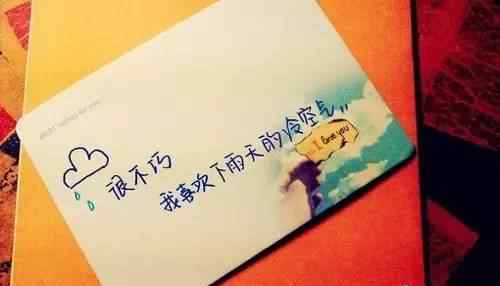 很不巧
我喜欢下雨天的冷空气,,